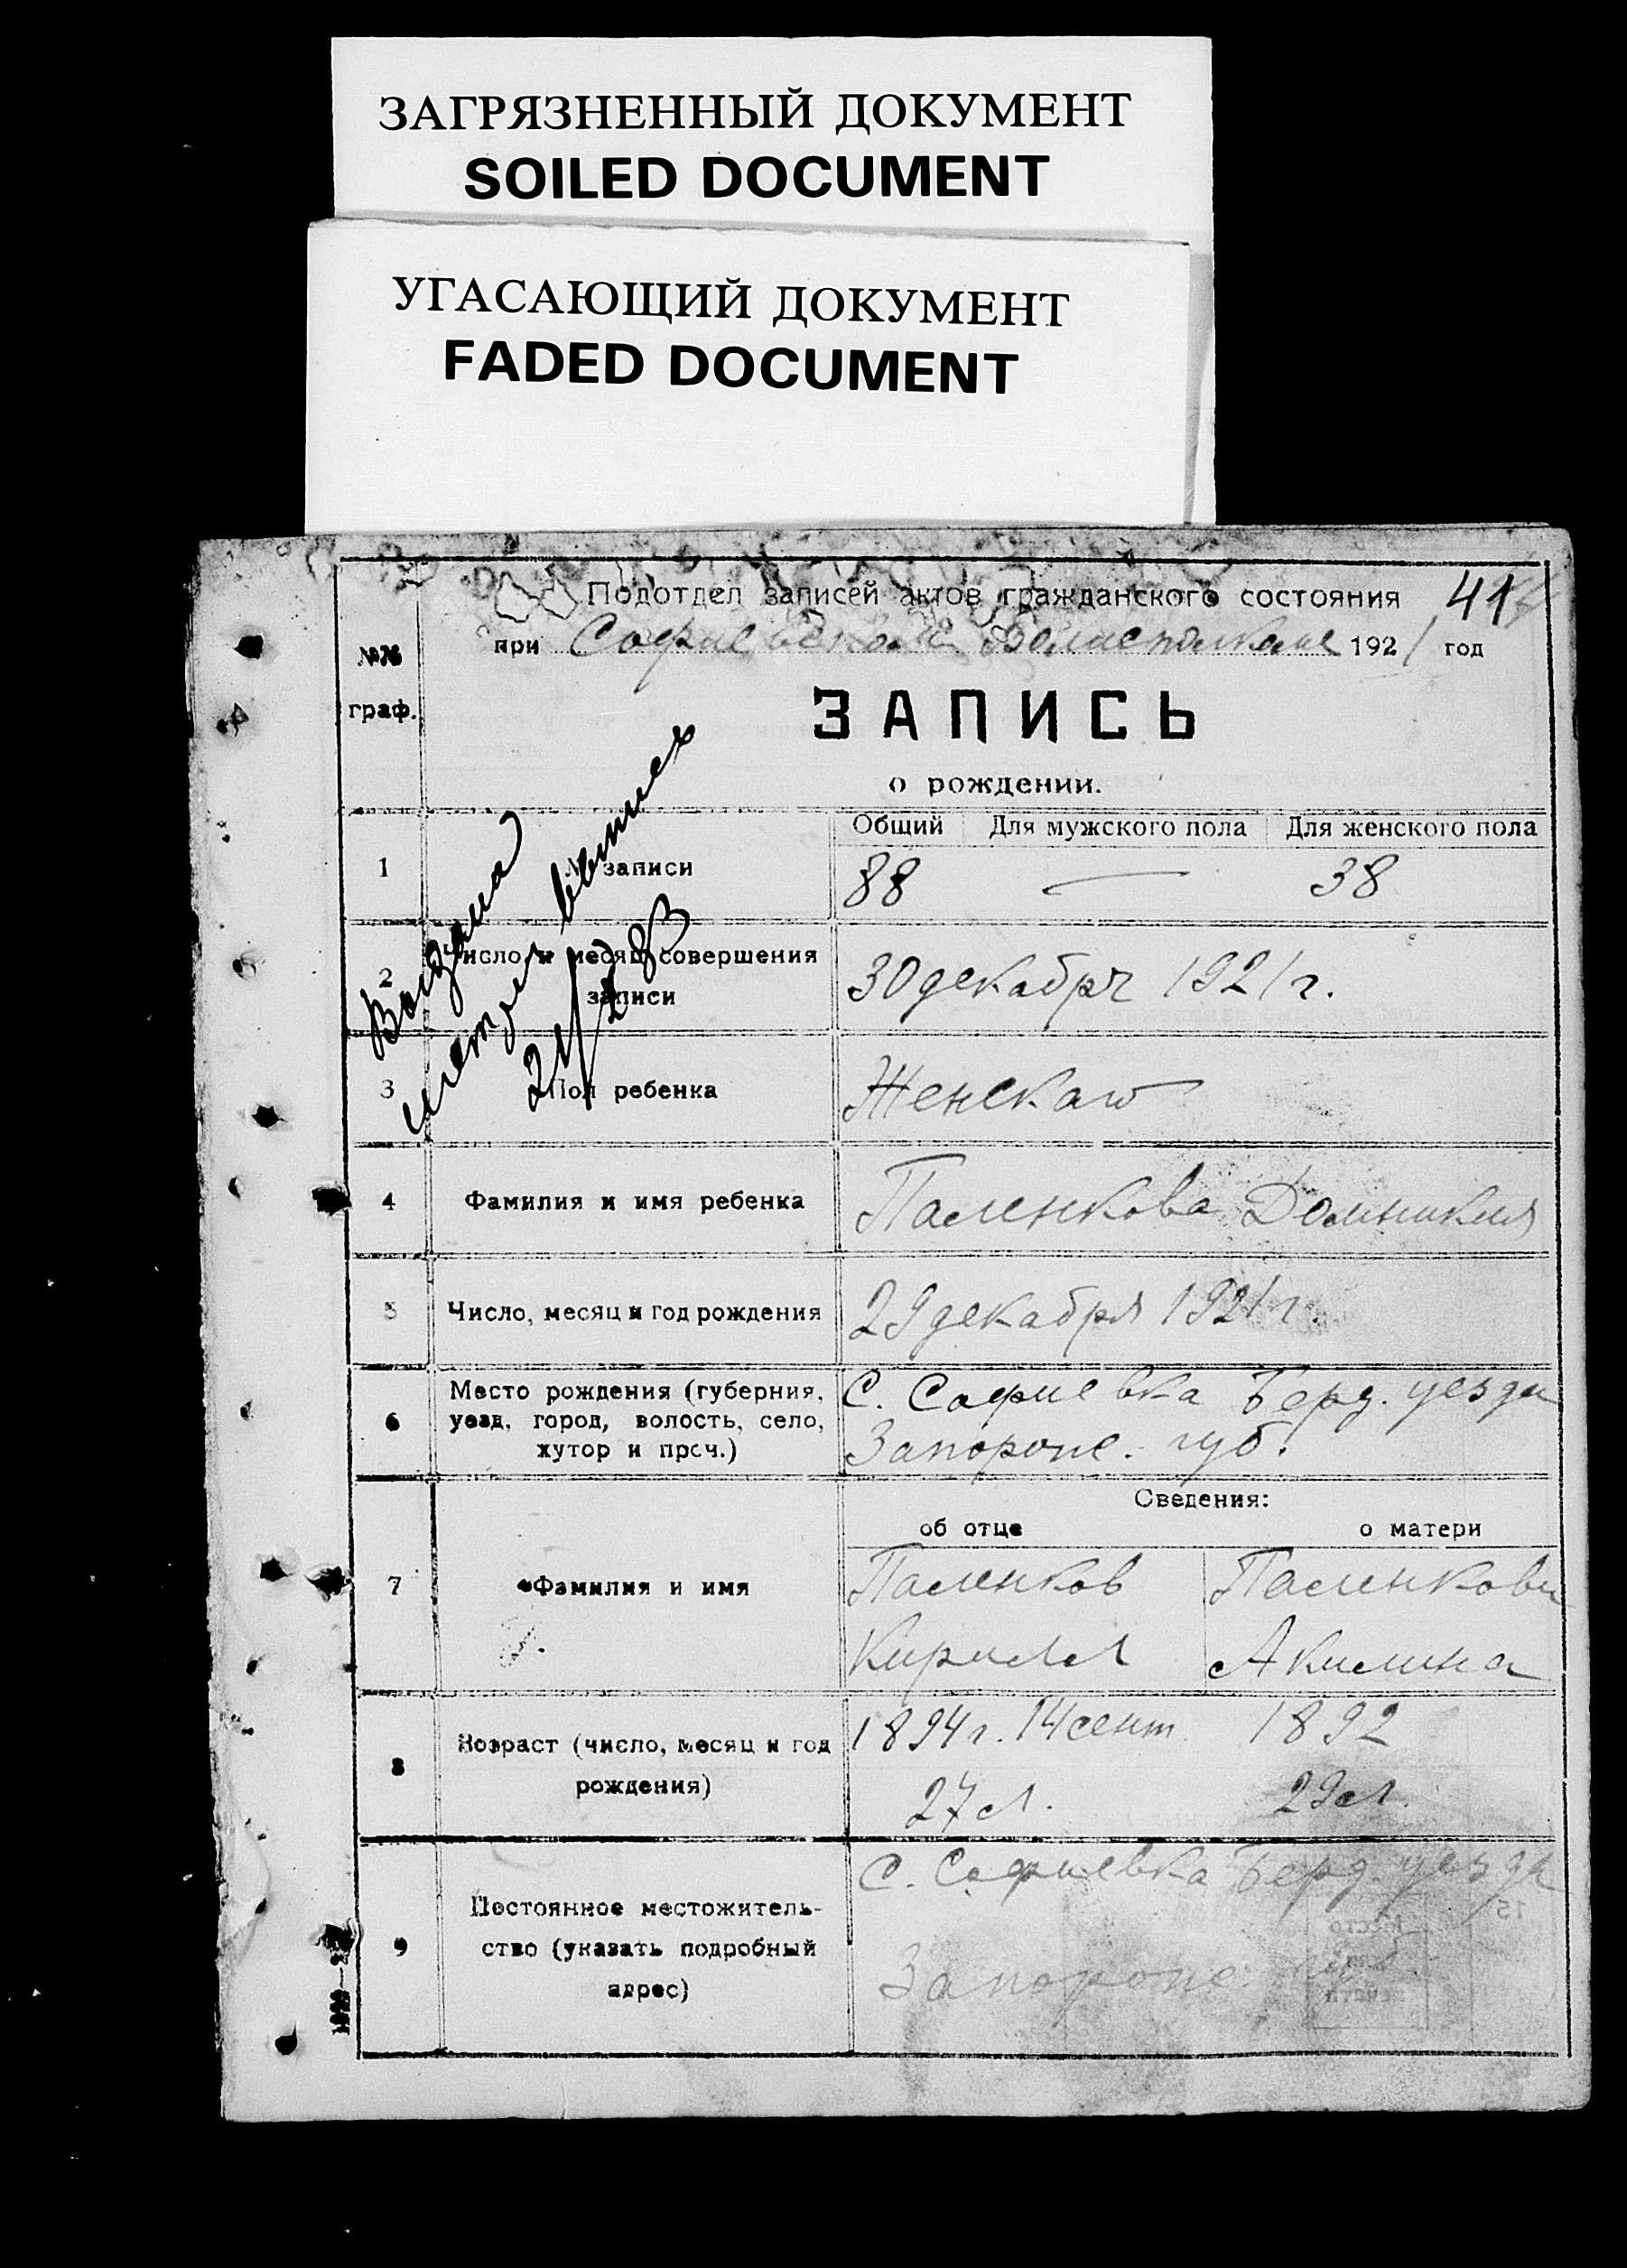 ЗАГРЯЗНЕННЫЙ ДОКУМЕНТ
SOILED DOCUMENT
УГАСАЮЩИЙ ДОКУМЕНТ
FADED DOCUMENT
Подотдел записей актов гражданского состояния 41
при Софиевском Волисполкоме 1921 год
№№
граф.
ЗАПИСЬ
о рождении.
Общий Для мужского пола Для женского пола
1 № записи 88 — 38
Выдана
2 Число и месяц совершения
записи 30 декабря 1921 г.
3 Пол ребенка Женскаго
4 Фамилия и имя ребенка Паленкова Домникия
5 Число, месяц и год рождения 29 декабря 1921 г.
6 Место рождения (губерния,
уезд, город, волость, село,
хутор и проч.)
С. Софиевка Берд. уезда
Запорож. губ.
Сведения:
об отце о матери
7 Фамилия и имя
Паленков Паленкова
Кирилл Акилина
8 Возраст (число, месяц и год
рождения)
1894 г. 14 сент. 1892
27 л. 29 л.
9 Постоянное местожитель-
ство (указать подробный
адрес)
С. Софиевка Берд. уезда
Запорож. губ.
15
Место
печати